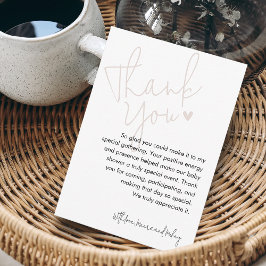 Thank
You
So glad you could make it to my
special gathering. Your positive energy
and presence helped make our baby
shower a truly special event. Thank
you for coming, participating, and
making that day so special.
We truly appreciate it,